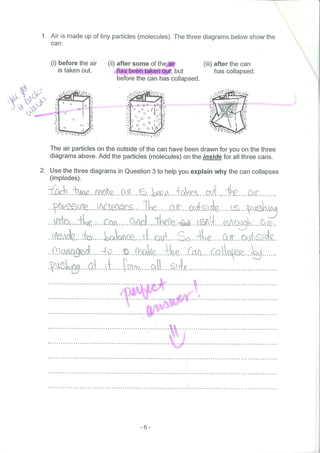 1. Air is made up of tiny particles (molecules). The three diagrams below show the
can:
(i) before the air
is taken out.
(ii) after some of the air
has been taken out but
before the can has collapsed.
(iii) after the can
has collapsed.
you got
it back-
wards
The air particles on the outside of the can have been drawn for you on the three
diagrams above. Add the particles (molecules) on the inside for all three cans.
2. Use the three diagrams in Question 3 to help you explain why the can collapses
(implodes).
Each time more air is been taken out, the air
pressure increases. The air outside is pushing
into the can and there isn't enough air
inside to balance it out. So the air outside
managed to make the can collapse by
pushing at it from all side
perfect
answer!
- 6 -